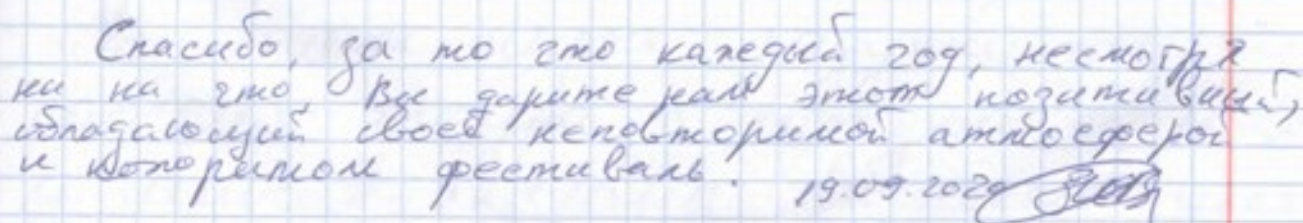 Спасибо, за то что каждый год, несмотря
ни на что, Вы дарите нам этот позитивный,
обладающий своей неповторимой атмосферой
и колоритом фестиваль. 19.09.2020